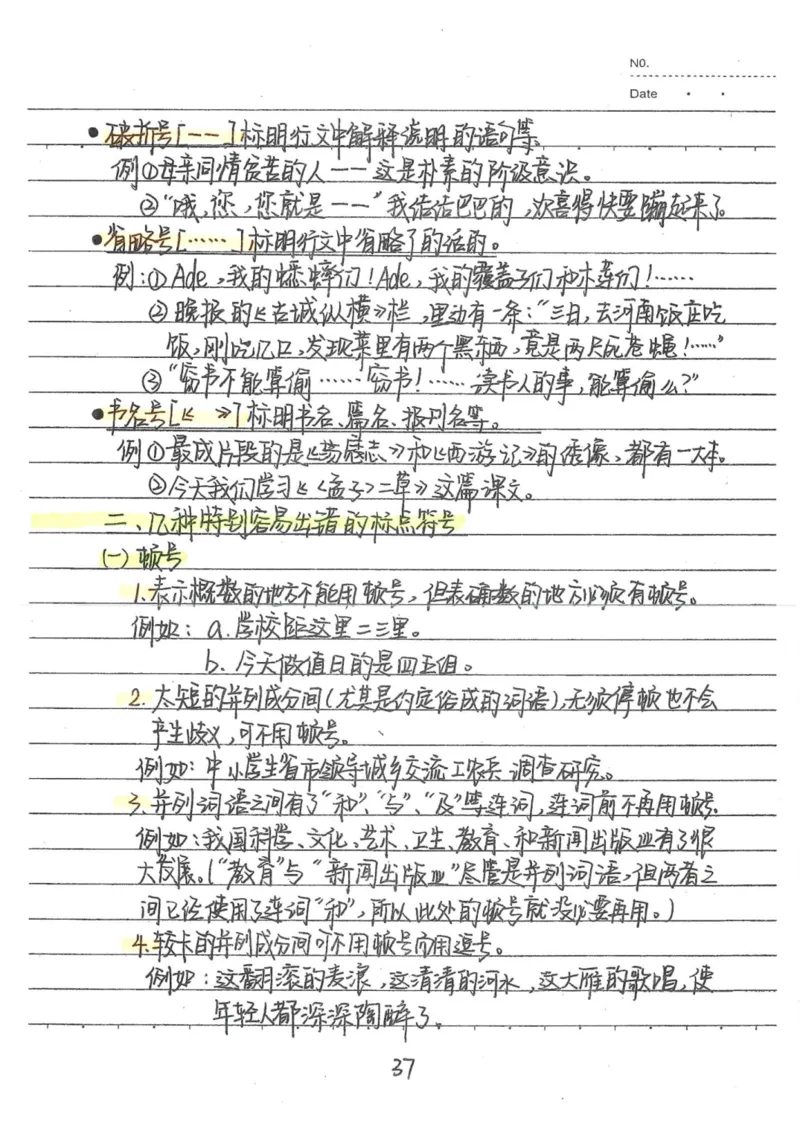 NO.
Date
●破折号[——]标明行文中解释说明的语句等.
例①母亲同情贫苦的人——这是朴素的阶级意识。
②“哦,您,您就是——”我结结巴巴的,欢喜得快要蹦起来了。
●省略号[……]标明行文中省略了的话的。
例:①Ade,我的蟋蟀们!Ade,我的覆盆子们和木莲们!……
②晚报的《古城纵横》栏,里边有一条:“三日,去河南饭庄吃
饭,刚吃几口,发现菜里有两个黑东西,竟是两只死苍蝇!……”
③“窃书不能算偷……窃书!……读书人的事,能算偷么?”
●书名号[《 》]标明书名、篇名、报刊名等。
例①最成片段的是《荡寇志》和《西游记》的绣像,都有一大本。
②今天我们学习《〈孟子〉二章》这篇课文。
二、几种特别容易出错的标点符号
(一)顿号
1.表示概数的地方不能用顿号,但表确数的地方必须有顿号。
例如:a.学校距这里二三里。
b.今天做值日的是四五组。
2.太短的并列成分间(尤其是约定俗成的词语),无须停顿也不会
产生歧义,可不用顿号。
例如:中小学生省市领导城乡交流工农兵调查研究。
3.并列词语之间有了“和”、“与”、“及”等连词,连词前不再用顿号.
例如:我国科学、文化、艺术、卫生、教育、和新闻出版业有了很
大发展。(“教育”与“新闻出版业”尽管是并列词语,但两者之
间已经使用了连词“和”,所以此处的顿号就没必要再用。)
4.较长的并列成分间可不用顿号而用逗号。
例如:这翻滚的麦浪,这清清的河水,这大雁的歌唱,使
年轻人都深深陶醉了。
37